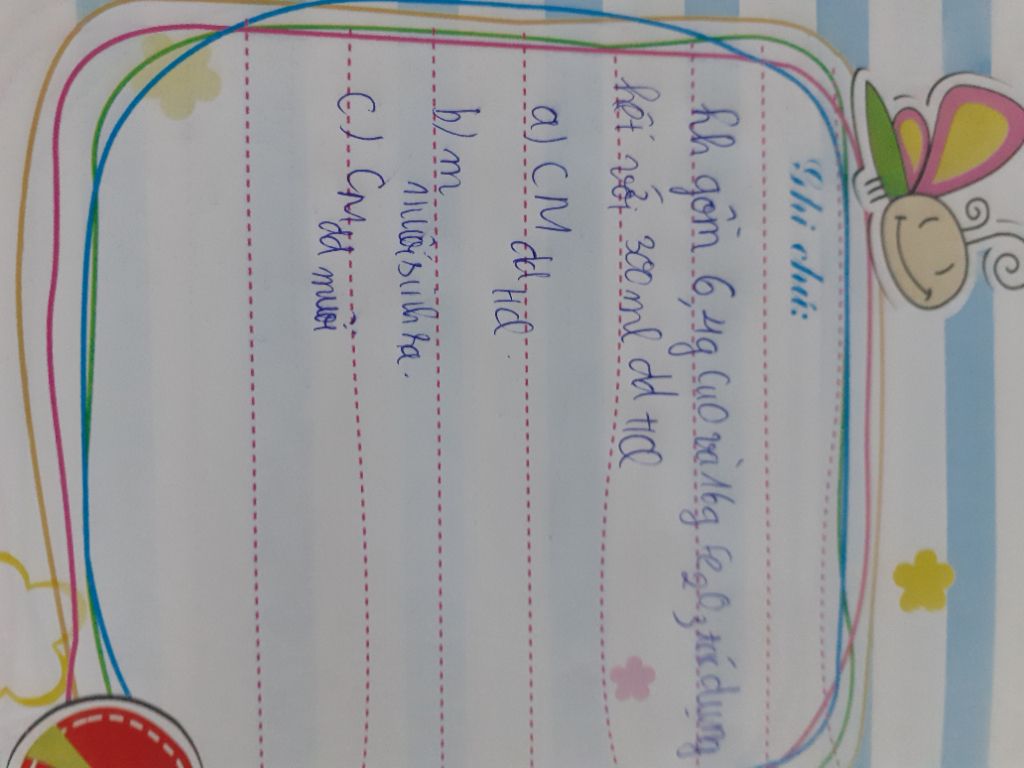 Ghi chú:
hh gồm 6,4g CuO và 16g Fe2O3 tác dụng
hết với 300ml dd HCl
a) CM dd HCl.
b) m muối sinh ra.
c) CM dd muối